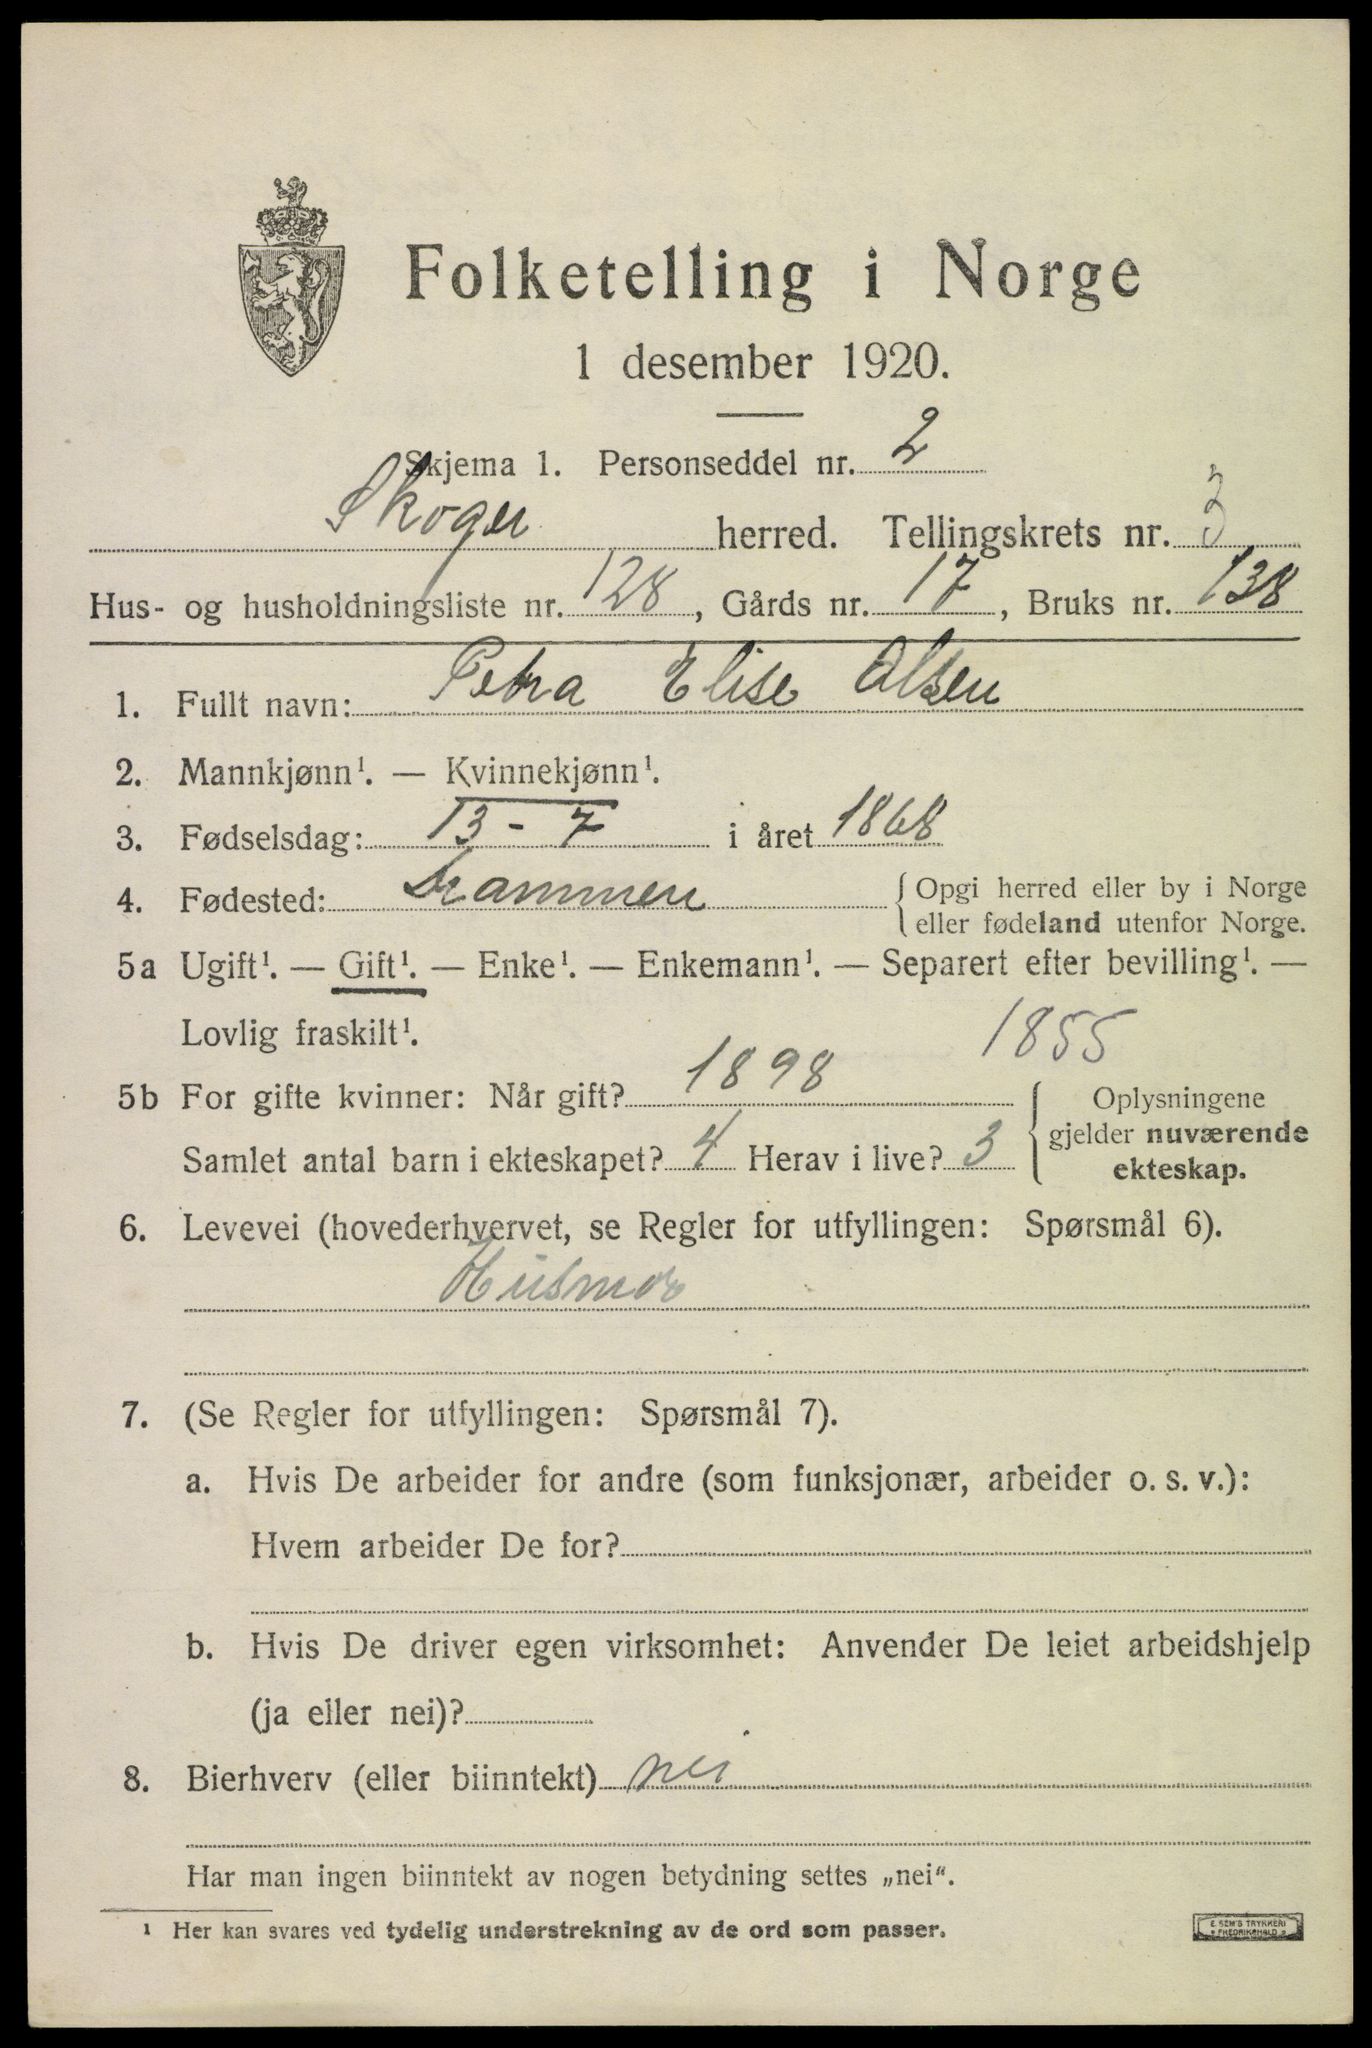 Folketelling i Norge
1 desember 1920.
Skjema 1. Personseddel nr. 2
Skoger herred. Tellingskrets nr. 3
Hus- og husholdningsliste nr. 128, Gårds nr. 17, Bruks nr. 138
1. Fullt navn: Petra Elise Olsen
2. Mannkjønn¹. — Kvinnekjønn¹.
3. Fødselsdag: 13 - 7 i året 1868
4. Fødested: Drammen { Opgi herred eller by i Norge
eller fødeland utenfor Norge.
5a Ugift¹. — Gift¹. — Enke¹. — Enkemann¹. — Separert efter bevilling¹. —
Lovlig fraskilt¹. 1855
5b For gifte kvinner: Når gift? 1898 { Oplysningene
gjelder nuværende
Samlet antal barn i ekteskapet? 4 Herav i live? 3 ekteskap.
6. Levevei (hovederhvervet, se Regler for utfyllingen: Spørsmål 6).
Husmor
7. (Se Regler for utfyllingen: Spørsmål 7).
a. Hvis De arbeider for andre (som funksjonær, arbeider o. s. v.):
Hvem arbeider De for?
b. Hvis De driver egen virksomhet: Anvender De leiet arbeidshjelp
(ja eller nei)?
8. Bierhverv (eller biinntekt) nei
Har man ingen biinntekt av nogen betydning settes „nei“.
¹ Her kan svares ved tydelig understrekning av de ord som passer.
E. SEM'S TRYKKERI
FREDRIKSHALD